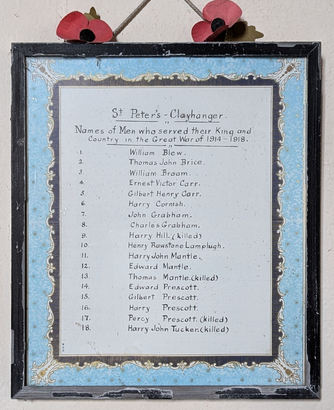 St Peter's - Clayhanger.
Names of Men who served their King and
Country in the Great War of 1914-1918.
1. William Blew.
2. Thomas John Brice.
3. William Broom.
4. Ernest Victor Carr.
5. Gilbert Henry Carr.
6. Harry Cornish.
7. John Grabham.
8. Charles Grabham.
9. Harry Hill. (killed)
10. Henry Rawstone Lamplugh.
11. Harry John Mantle.
12. Edward Mantle.
13. Thomas Mantle. (killed)
14. Edward Prescott.
15. Gilbert Prescott.
16. Harry Prescott.
17. Percy Prescott. (killed)
18. Harry John Tucker. (killed)